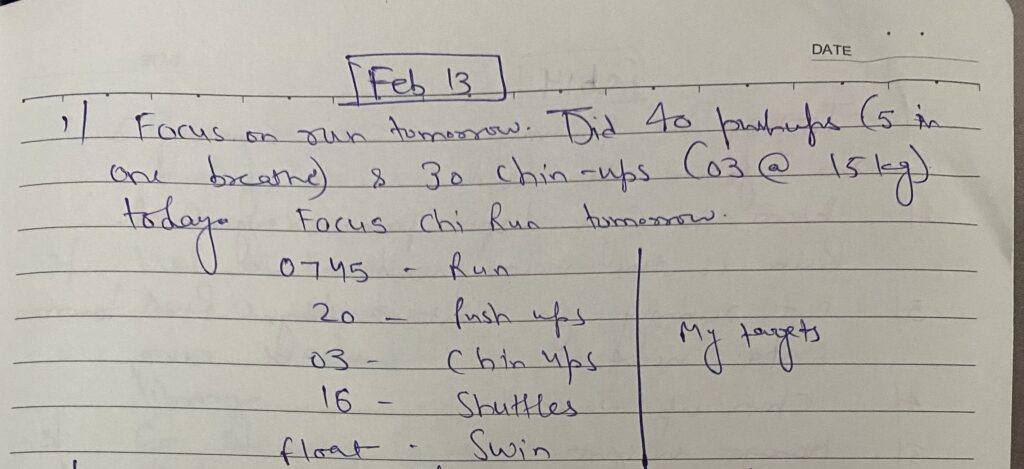 DATE
Feb 13
1) Focus on run tomorrow. Did 40 pushups (5 in
one breathe) & 30 chin-ups (03 @ 15 kg)
today. Focus Chi Run tomorrow.
0745 - Run
20 - Push ups
03 - Chin ups
My targets
16 - Shuttles
float - Swim